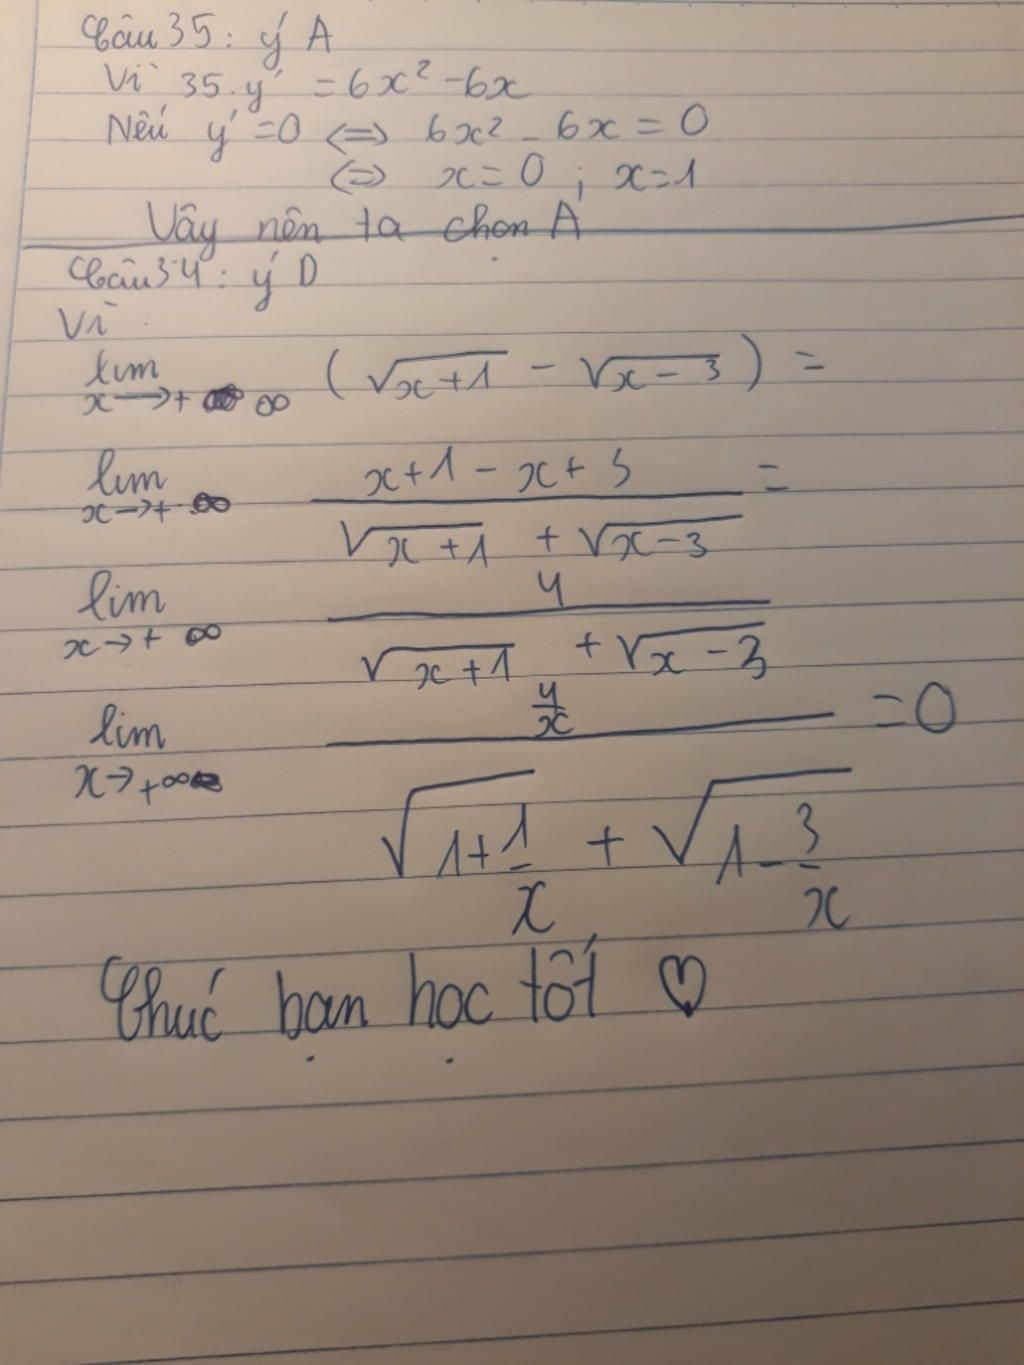 Câu 35: ý A
Vì 35. y' = 6x² - 6x
Nếu y' = 0 <=> 6x² - 6x = 0
<=> x = 0 ; x = 1
Vậy nên ta chọn A
Câu 34: ý D
Vì:
lim x→+∞ (√(x+1) - √(x-3)) =
lim x→+∞ (x+1-x+3)/(√(x+1) + √(x-3)) =
lim x→+∞ 4/(√(x+1) + √(x-3))
lim x→+∞ (4/x)/(√(1+1/x) + √(1-3/x)) = 0
Chúc bạn học tốt ♡